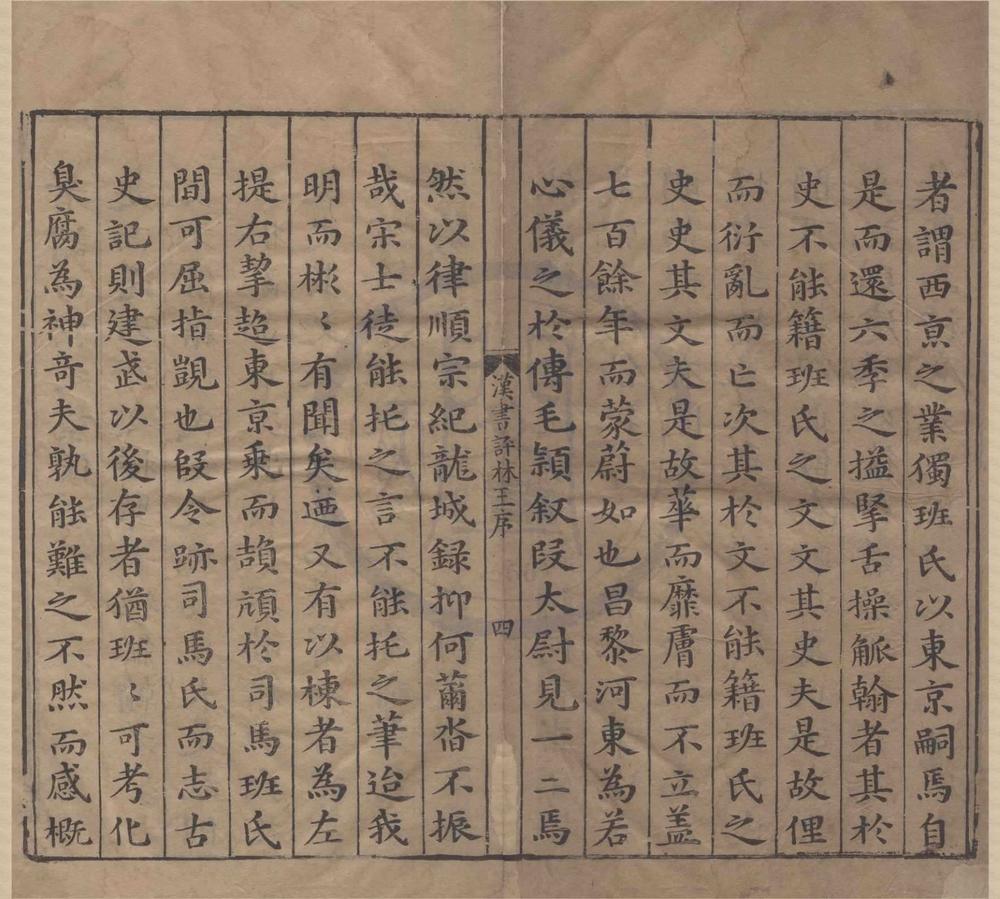 者謂西京之業獨班氏以東京嗣焉自
是而還六季之搤擥舌操觚翰者其於
史不能籍班氏之文文其史夫是故俚
而衍亂而亡次其於文不能籍班氏之
史史其文夫是故華而靡膚而不立蓋
七百餘年而蒙蔚如也昌黎河東為若
心儀之於傳毛穎叙段太尉見一二焉
漢書評林王序
四
然以律順宗紀龍城録抑何薾沓不振
哉宋士徒能托之言不能托之筆迨我
明而彬〻有聞矣迺又有以棟者為左
提右挈超東京乘而頡頏於司馬班氏
間可屈指覬也叚令跡司馬氏而志古
史記則建武以後存者猶班〻可考化
臭腐為神奇夫孰能難之不然而感概